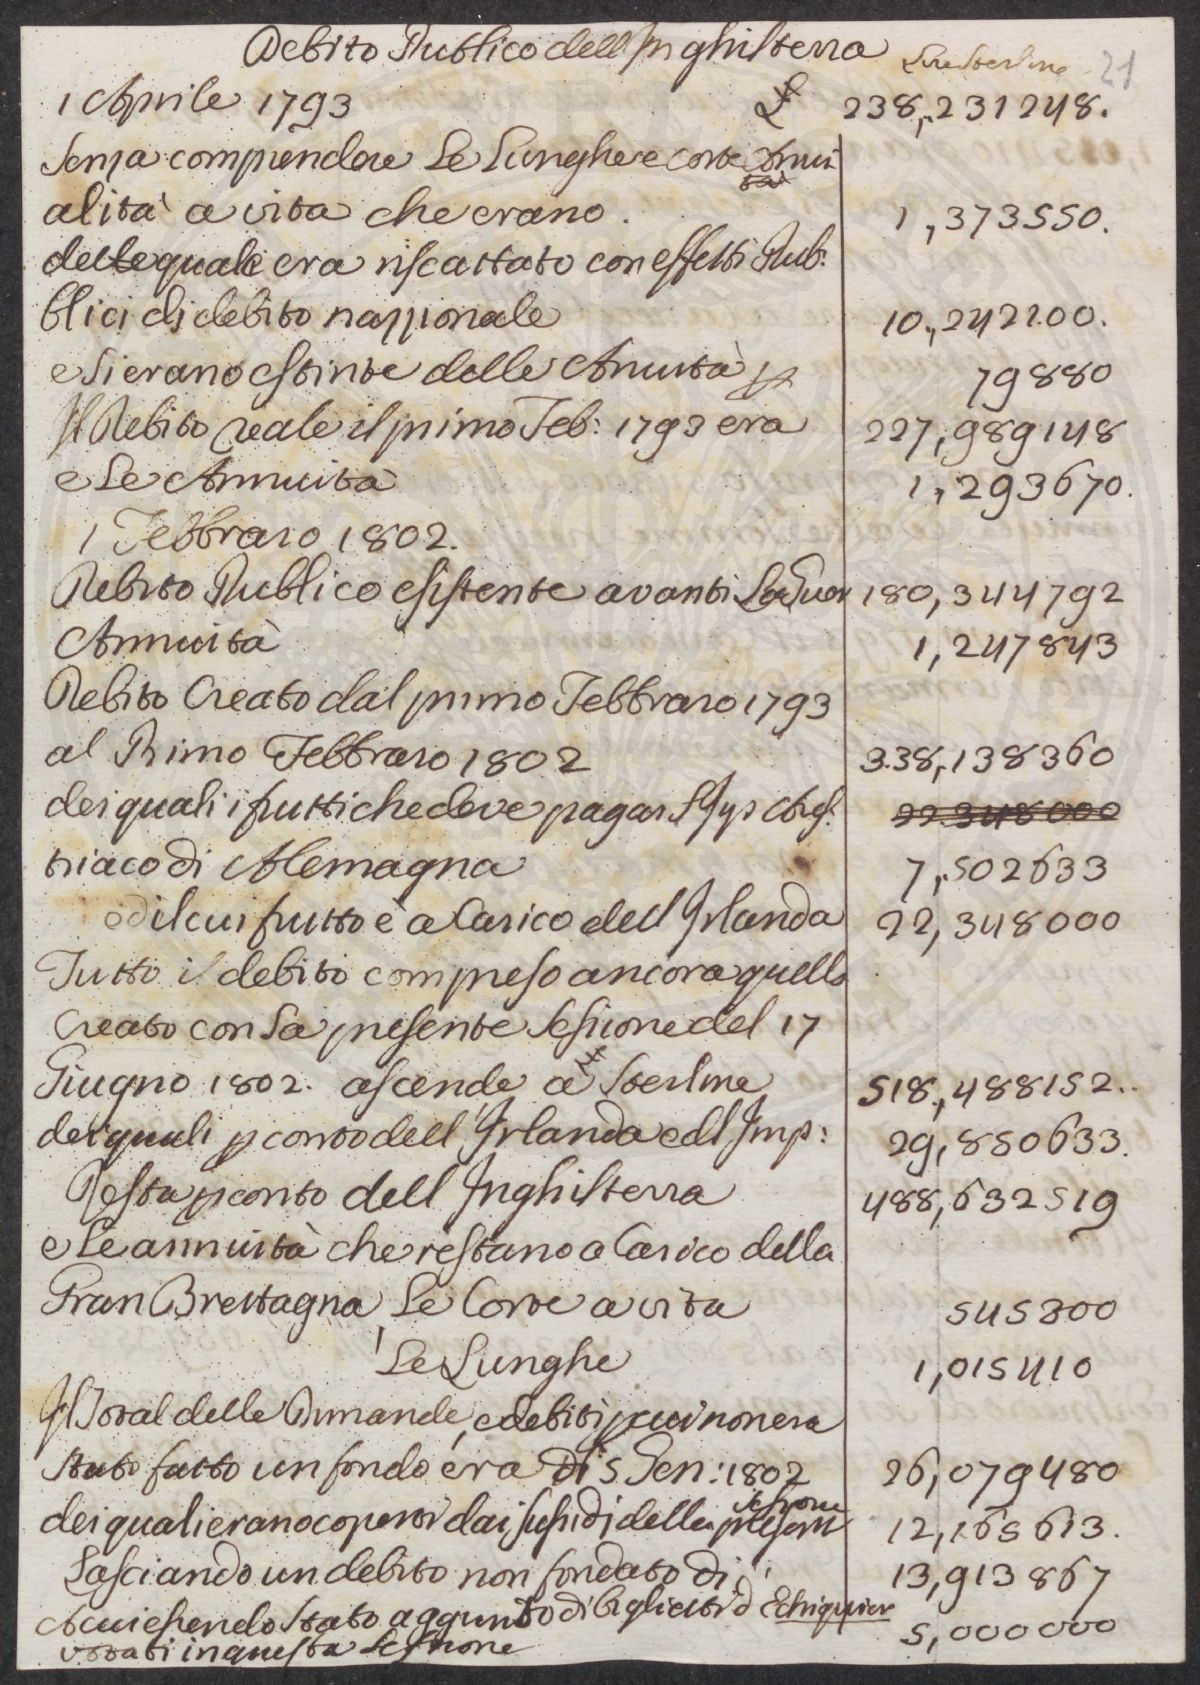 Debito Publico dell Inghilterra Lire Sterline 21
1 Aprile 1793 £ 238,,231248.
Senza comprendere Le Lunghe e Corte Annu
alità a vita che erano. 1,373550.
delle quale era riscattato con effetti Pub:
blici di debito nazzionale 10,,242200.
e Si erano estinte delle Annuità p 79880
Il Debito reale il primo Feb: 1793 era 227,989148
e Le Annuita 1,,293670.
1 Febbraro 1802.
Debito Publico esistente avanti La Guer 180,344792
Annuità 1,247843
Debito Creato dal primo Febbraro 1793
al Primo Febbraro 1802 338,,138360
dei quali i frutti che deve pagar l'Imp Aus: 22348000
triaco di Alemagna 7,,502633
ed il cui frutto è a Carico dell Irlanda 22,348000
Tutto il debito compreso ancora quello
Creato con La presente Sessione del 17
Giugno 1802. ascende a £ Sterline 518,,488152..
dei quali p conto dell'Irlanda e dl Imp: 29,850633.
Resta p conto dell Inghilterra 488,632519
e Le annuità che restano a Carico della
Gran Brettagna Le Corte a vita 545300
Le Lunghe 1,015410
Il Total delle Dimande, e debiti p cui non era
stato fatto un fondo era di 5 Gen: 1802 26,079480
dei quali erano coperti dai susidj della presente sessione 12,165613.
Lasciando un debito non fondato di 13,913867
A cui essendo Stato aggunto di biglietti d'Echiquier 5,000000
votati in questa Sessione